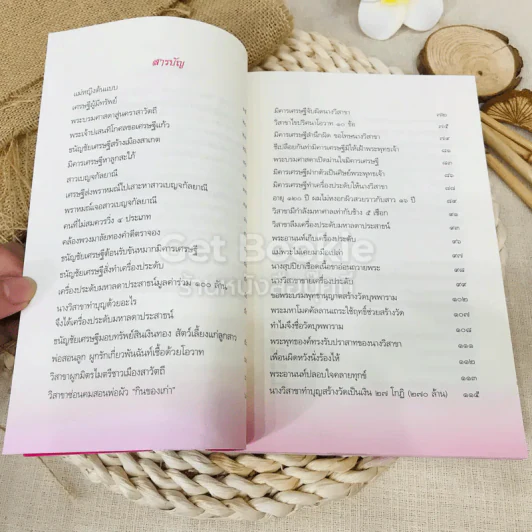 สารบัญ
แม่หญิงต้นแบบ
เศรษฐีผู้มีทรัพย์
พระบรมศาสดาสู่นครสาวัตถี
พระเจ้าปเสนทิโกศลขอเศรษฐีแก้ว
ธนัญชัยเศรษฐีสร้างเมืองสาเกต
มิคารเศรษฐีหาลูกสะใภ้
สาวเบญจกัลยาณี
เศรษฐีส่งพราหมณ์ไปเสาะหาสาวเบญจกัลยาณี
พราหมณ์เจอสาวเบญจกัลยาณี
คนที่ไม่สมควรวิ่ง ๔ ประเภท
คล้องพวงมาลัยทองคำตีตราจอง
ธนัญชัยเศรษฐีต้อนรับขันหมากมิคารเศรษฐี
ธนัญชัยเศรษฐีสั่งทำเครื่องประดับ
เครื่องประดับมหาลดาประสาธน์มูลค่าร่วม ๑๐๐ ล้าน
นางวิสาขาทำบุญด้วยอะไร
จึงได้เครื่องประดับมหาลดาประสาธน์
ธนัญชัยเศรษฐีมอบทรัพย์สินเงินทอง สัตว์เลี้ยงแก่ลูกสาว
พ่อสอนลูก ผูกรักเกี่ยวพันฉันท์เชื้อด้วยโอวาท
วิสาขาผูกมิตรไมตรีชาวเมืองสาวัตถี
วิสาขาซ่อนคมสอนพ่อผัว "กินของเก่า"
มิคารเศรษฐีจับผิดนางวิสาขา ๗๒
วิสาขาไขปริศนาโอวาท ๑๐ ข้อ ๗๕
มิคารเศรษฐีสำนึกผิด ขอโทษนางวิสาขา ๗๙
ชีเปลือยกันท่ามิคารเศรษฐีมิให้เฝ้าพระพุทธเจ้า
พระบรมศาสดาเปิดม่านใจมิคารเศรษฐี
มิคารเศรษฐีฝากตัวเป็นศิษย์พระพุทธเจ้า
มิคารเศรษฐีทำเครื่องประดับให้นางวิสาขา
อายุ ๑๒๐ ปี ผมไม่หงอกผิวสวยราวกับสาว ๑๖ ปี
วิสาขามีกำลังมหาศาลเท่ากับช้าง ๕ เชือก
วิสาขาลืมเครื่องประดับมหาลดาประสาธน์
พระอานนท์เก็บเครื่องประดับ ๙๖
นางสุปปิยาเชือดเนื้อขาอ่อนถวายพระ
นางวิสาขาขายเครื่องประดับ
ขอพระบรมพุทธานุญาตสร้างวัดบุพพาราม ๑๐๒
พระมหาโมคคัลลานเถระใช้ฤทธิ์ช่วยสร้างวัด
ทำไมจึงชื่อวัดบุพพาราม ๑๐๘
พระพุทธองค์ทรงรับปราสาทของนางวิสาขา ๑๑๑
เพื่อนผิดหวังนั่งร้องไห้ ๑๑๒
พระอานนท์ปลอบใจคลายทุกข์ ๑๑๓
นางวิสาขาทำบุญสร้างวัดเป็นเงิน ๒๗ โกฏิ (๒๗๐ ล้าน) ๑๑๕
Get Bookie
ร้านหนังสือ